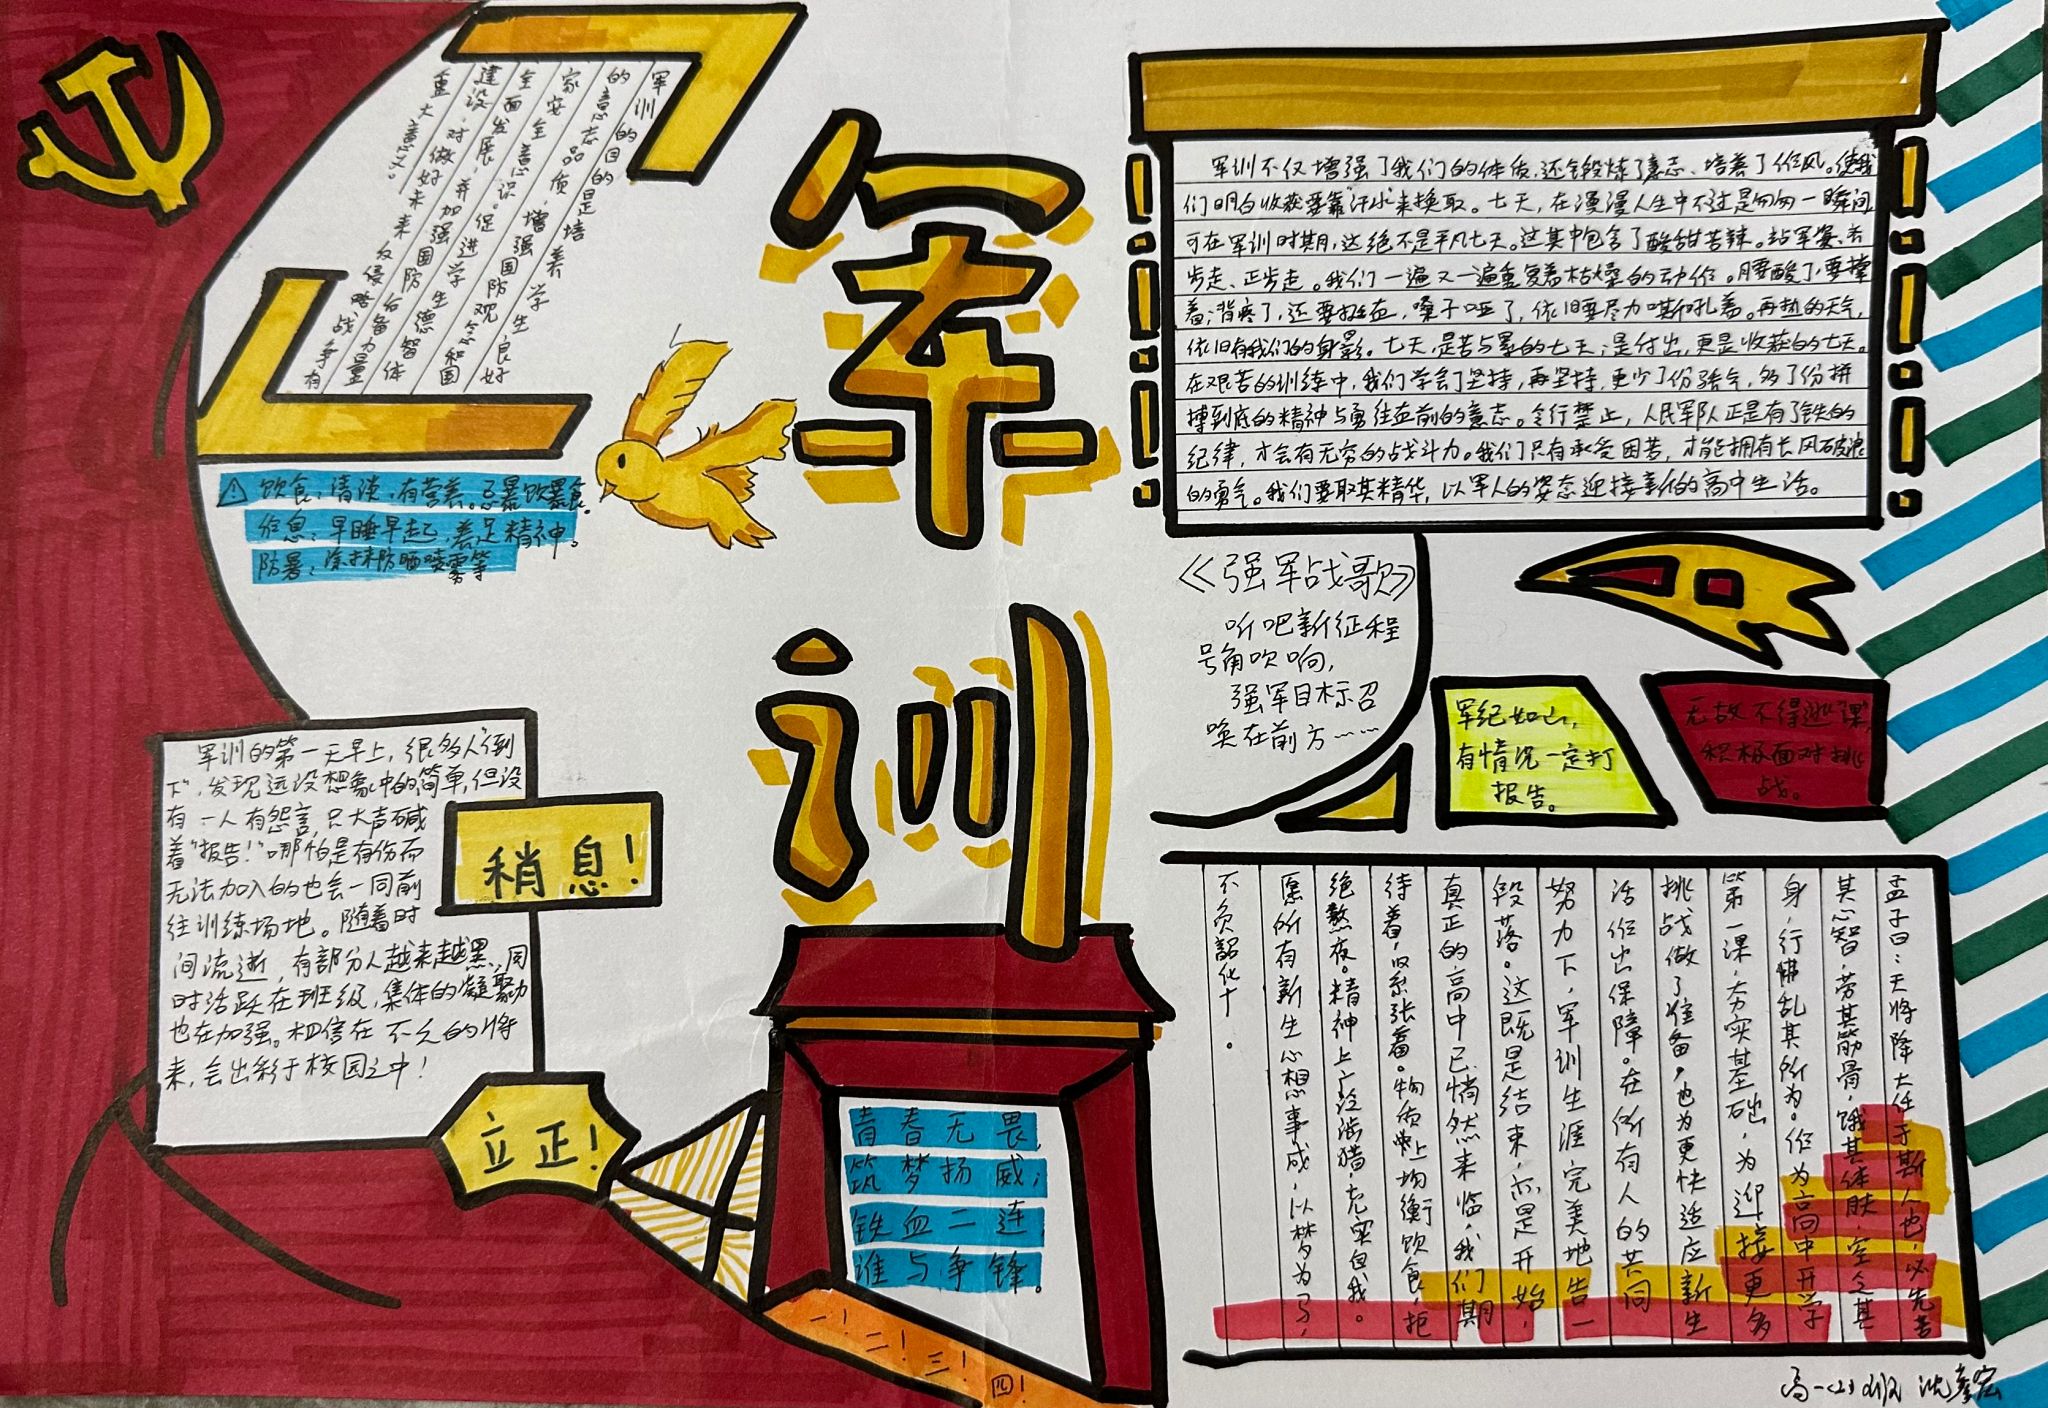 军训的目的是培养学生良好
的意志品质,增强国防观念和国
家安全意识。促进学生德智体
全面发展,并加强国防后备力量
建设,对做好未来反侵略战争有
重大意义。
饮食:清淡,有营养。忌暴饮暴食。
作息:早睡早起,养足精神。
防暑:涂抹防晒喷雾等
军训
军训不仅增强了我们的体质,还锻炼了意志、培养了作风。使我
们明白收获要靠“汗水”来换取。七天,在漫漫人生中不过是匆匆一瞬间,
可在军训时期,这绝不是平凡七天。这其中包含了酸甜苦辣。站军姿、齐
步走、正步走。我们一遍又一遍重复着枯燥的动作。腰酸了,要撑
着;背疼了,还要挺直,嗓子哑了,依旧要尽力嘶吼着。再热的天气,
依旧有我们的身影。七天,是苦与累的七天;是付出,更是收获的七天。
在艰苦的训练中,我们学会了坚持,再坚持,更少了份娇气,多了份拼
搏到底的精神与勇往直前的意志。令行禁止,人民军队正是有了铁的
纪律,才会有无穷的战斗力。我们只有承受困苦,才能拥有长风破浪
的勇气。我们要取其精华,以军人的姿态迎接新的高中生活。
《强军战歌》
听吧新征程
号角吹响,
强军目标召
唤在前方……
军纪如山,
有情况一定打
报告。
无故不得“逃课”,
积极面对挑
战。
军训的第一天早上,很多人“倒
下”,发现远没想象中的简单,但没
有一人有怨言,只大声喊
着“报告!”哪怕是有伤而
无法加入的也会一同前
往训练场地。随着时
间流逝,有部分人越来越黑,同
时活跃在班级,集体的凝聚力
也在加强。相信在不久的将
来,会出彩于校园之中!
稍息!
立正!
青春无畏,
筑梦扬威;
铁血二连
谁与争锋。
一!二!三!四!
孟子曰:天将降大任于斯人也,必先苦
其心智,劳其筋骨,饿其体肤,空乏其
身,行拂乱其所为。作为高中开学
第一课,夯实基础,为迎接更多
挑战做了准备,也为更快适应新生
活作出保障。在所有人的共同
努力下,军训生涯完美地告一
段落。这既是结束,亦是开始,
真正的高中已悄然来临,我们期
待着,也紧张着。物质上均衡饮食,拒
绝熬夜。精神上广泛涉猎,充实自我。
愿所有新生心想事成,以梦为马,
不负韶华。
高一(2)班 沈彦宏